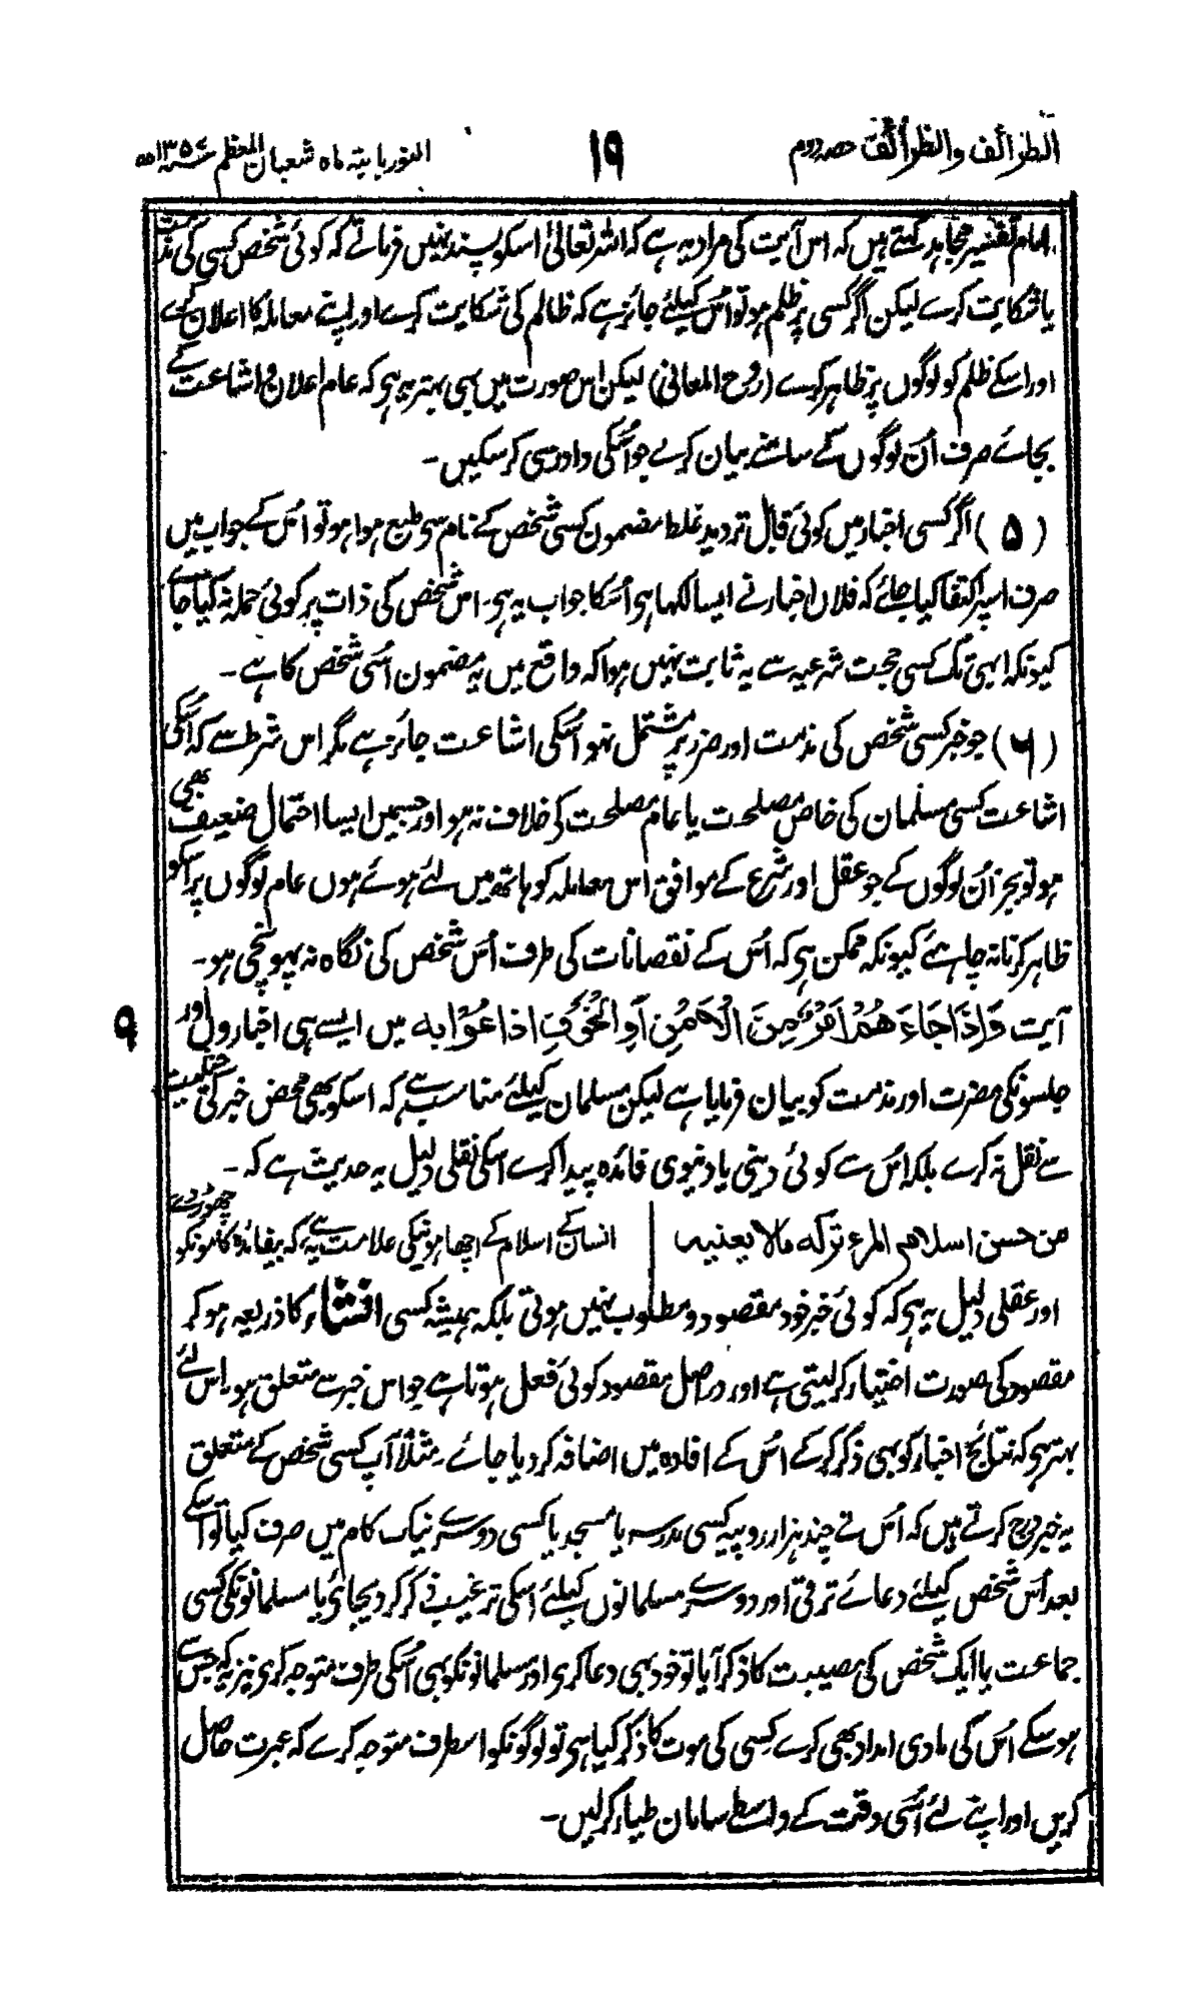 الطرائف والظرائف حصہ دوم
۱۹
النور بابتہ ماہ شعبان المعظم سنہ ۱۳۵۷ھ
امام تفسیر مجاہد کہتے ہیں کہ اس آیت کی مراد یہ ہے کہ اللہ تعالیٰ اسکو پسند نہیں فرماتے کہ کوئی شخص کسی کی مذمت
یا شکایت کرے لیکن اگر کسی پر ظلم ہو تو اُس کیلئے جائز ہے کہ ظالم کی شکایت کرے اور اپنے معاملہ کا اعلان کرے
اور اسکے ظلم کو لوگوں پر ظاہر کرے (روح المعانی) لیکن اس صورت میں بھی بہتر یہ ہی کہ عام اعلان و اشاعت کے
بجائے صرف اُن لوگوں کے سامنے بیان کرے جو اُسکی دادرسی کر سکیں۔
(۵) اگر کسی اخبار میں کوئی قابل تردید غلط مضمون کسی شخص کے نام سی طبع ہوا ہو تو اس کے جواب میں
صرف اسپر اکتفا کیا جائے کہ فلاں اخبار نے ایسا لکھا ہی اُسکا جواب یہ ہی۔ اس شخص کی ذات پر کوئی حملہ نہ کیا جائے
کیونکہ ابھی تک کسی حجت شرعیہ سے یہ ثابت نہیں ہوا کہ واقع میں یہ مضمون اُسی شخص کا ہے۔
(۶) جو خبر کسی شخص کی مذمت اور ضرر پر مشتمل نہو اُسکی اشاعت جائز ہے مگر اس شرط سے کہ اُسکی
اشاعت کسی مسلمان کی خاص مصلحت یا عام مصلحت کے خلاف نہ ہو اور جسمیں ایسا احتمال ضعیف بھی
ہو تو بجز اُن لوگوں کے جو عقل اور شرع کے موافق اس معاملہ کو ہاتھ میں لئے ہوئے ہوں عام لوگوں پر اسکو
ظاہر کرنا نہ چاہئے کیونکہ ممکن ہی کہ اُس کے نقصانات کی طرف اُس شخص کی نگاہ نہ پہونچی ہو۔
آیت وَاِذَا جَاءَ هُمْ اَمْرٌ مِنَ الْاَمْنِ اَوِ الْخَوْفِ اذا عُوْا بہ میں ایسے ہی اخباروں اور
۹
جلسونکی مضرت اور مذمت کو بیان فرمایا ہے لیکن مسلمان کیلئے مناسب ہے کہ اسکو بھی محض خبر کی حیثیت
سے نقل نہ کرے بلکہ اس سے کوئی دینی یا دنیوی فائدہ پیدا کرے اسکی نقلی دلیل یہ حدیث ہے کہ۔
من حسن اسلام المرء ترکہ مالا یعنیہ
انسان کے اسلام کے اچھا ہونیکی علامت یہ ہے کہ بیفائدہ کامونکو چھوڑ دے
اور عقلی دلیل یہ ہی کہ کوئی خبر خود مقصود و مطلوب نہیں ہوتی بلکہ ہمیشہ کسی افشاء کا ذریعہ ہو کر
مقصود کی صورت اختیار کر لیتی ہے اور در اصل مقصود کوئی فعل ہوتا ہے جو اس خبر سے متعلق ہو۔ اس لئے
بہتر ہی کہ نتایج اخبار کو بھی ذکر کر کے اس کے افادہ میں اضافہ کر دیا جائے۔ مثلاً آپ کسی شخص کے متعلق
یہ خبر درج کرتے ہیں کہ اُس نے چند ہزار روپیہ کسی مدرسہ یا مسجد یا کسی دوسرے نیک کام میں صرف کیا تو اسکے
بعد اُس شخص کیلئے دعائے ترقی اور دوسرے مسلمانوں کیلئے اسکی ترغیب ذکر کر دیجائی یا مسلمانونکی کسی
جماعت یا ایک شخص کی مصیبت کا ذکر آیا تو خود بھی دعا کری اور مسلمانونکو بھی اُسکی طرف متوجہ کری نیز یہ کہ جس سے
ہو سکے اُس کی مادی امداد بھی کرے کسی کی موت کا ذکر کیا ہی تو لوگونکو اسطرف متوجہ کرے کہ عبرت حاصل
کریں اور اپنے لئے اُسی وقت کے واسطے سامان طیار کر لیں۔